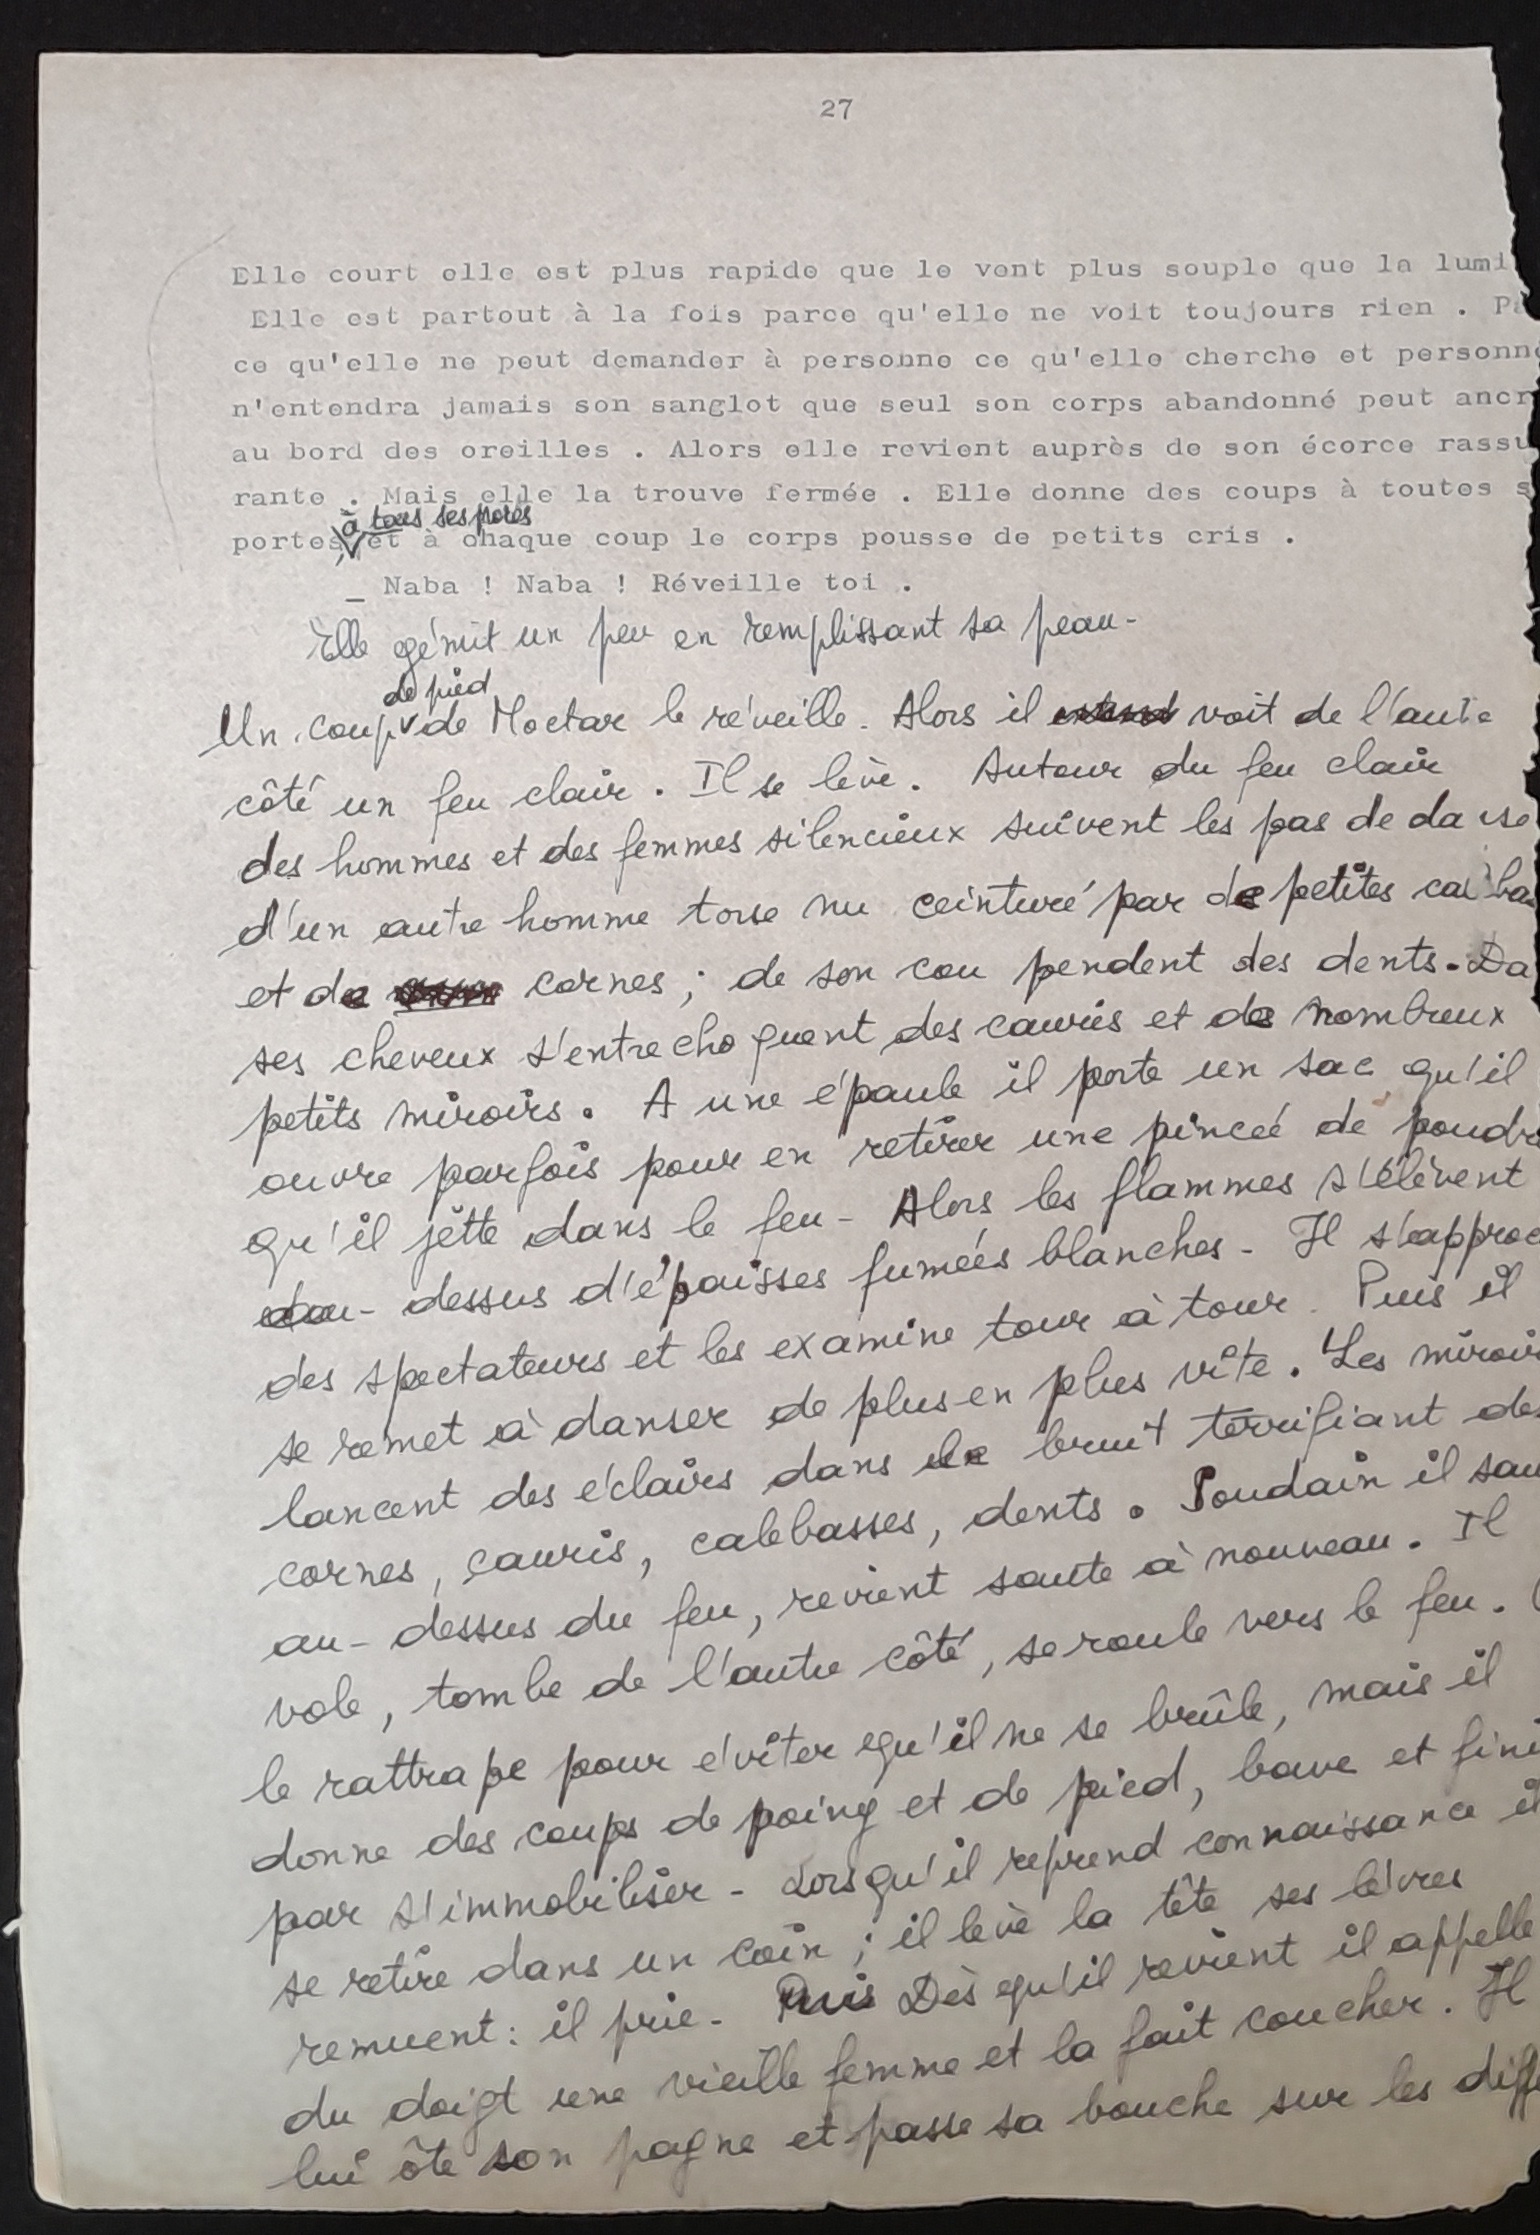 27
Elle court elle est plus rapide que le vent plus souple que la lumi
Elle est partout à la fois parce qu'elle ne voit toujours rien . Pa
ce qu'elle ne peut demander à personne ce qu'elle cherche et personne
n'entendra jamais son sanglot que seul son corps abandonné peut ancr
au bord des oreilles . Alors elle revient auprès de son écorce rassu
rante . Mais elle la trouve fermée . Elle donne des coups à toutes s
à tous ses pores
portes, et à chaque coup le corps pousse de petits cris .
_ Naba ! Naba ! Réveille toi .
Elle gémit un peu en remplissant sa peau -
de pied
Un coup de Moctar le réveille. Alors il voit de l'autre
côté un feu clair. Il se lève. Autour du feu clair
des hommes et des femmes silencieux suivent les pas de danse
d'un autre homme torse nu ceinturé par de petites calba
et de cornes ; de son cou pendent des dents. Da
ses cheveux s'entrechoquent des cauris et de nombreux
petits miroirs. A une épaule il porte un sac qu'il
ouvre parfois pour en retirer une pincée de poudre
qu'il jette dans le feu - Alors les flammes s'élèvent
au-dessus d'épaisses fumées blanches - Il s'approc
des spectateurs et les examine tour à tour. Puis il
se remet à danser de plus en plus vite. Les miroirs
lancent des éclairs dans le bruit terrifiant des
cornes, cauris, calebasses, dents. Soudain il sau
au-dessus du feu, revient saute à nouveau. Il
vole, tombe de l'autre côté, se roule vers le feu.
le rattrape pour éviter qu'il ne se brûle, mais il
donne des coups de poing et de pied, bave et fini
par s'immobiliser - Lorsqu'il reprend connaissance il
se retire dans un coin ; il lève la tête ses lèvres
remuent : il prie - Puis Dès qu'il revient il appelle
du doigt une vieille femme et la fait coucher. Il
lui ôte son pagne et passe sa bouche sur les diffé